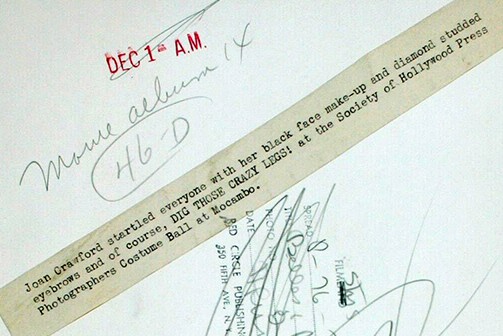 DEC 1 - A.M.
Movie album 14
46-D
Joan Crawford startled everyone with her black face make-up and diamond studded
eyebrows and of course, DIG THOSE CRAZY LEGS! at the Society of Hollywood Press
Photographers Costume Ball at Mocambo.
8-76
DATE
RED CIRCLE PUBLISHING
350 FIFTH AVE. N.